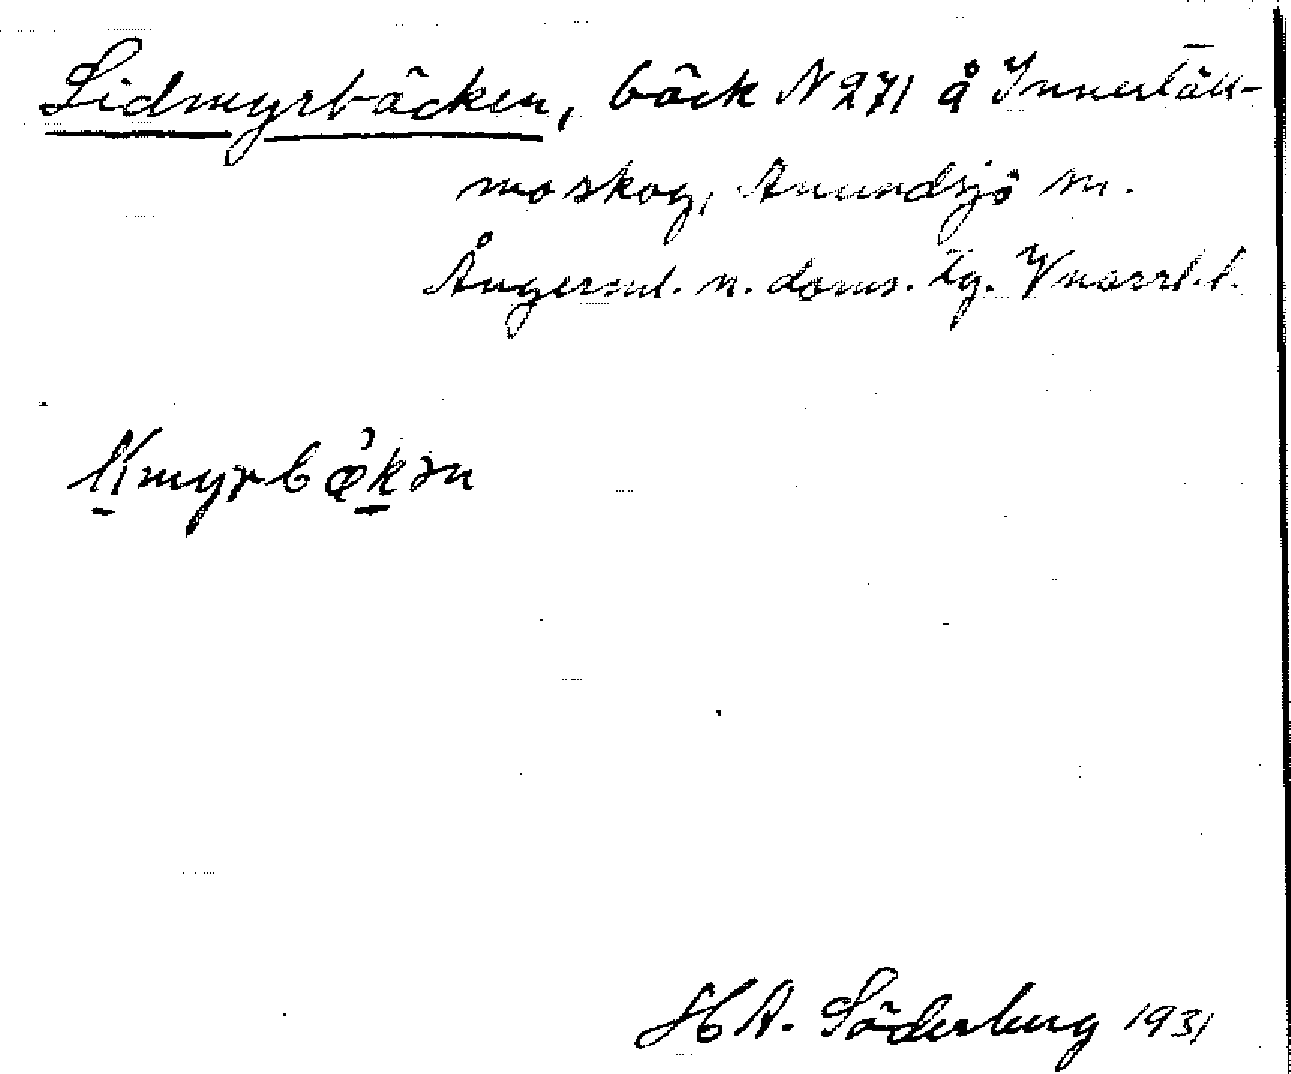 Lidmyrbäcken, bäck N 271 å Innertäll-
moskog, Anundsjö sn.
Ångerml. n. doms. tg. Vnorrl. l.
myrbæ̀kən
HA. Söderberg 1931